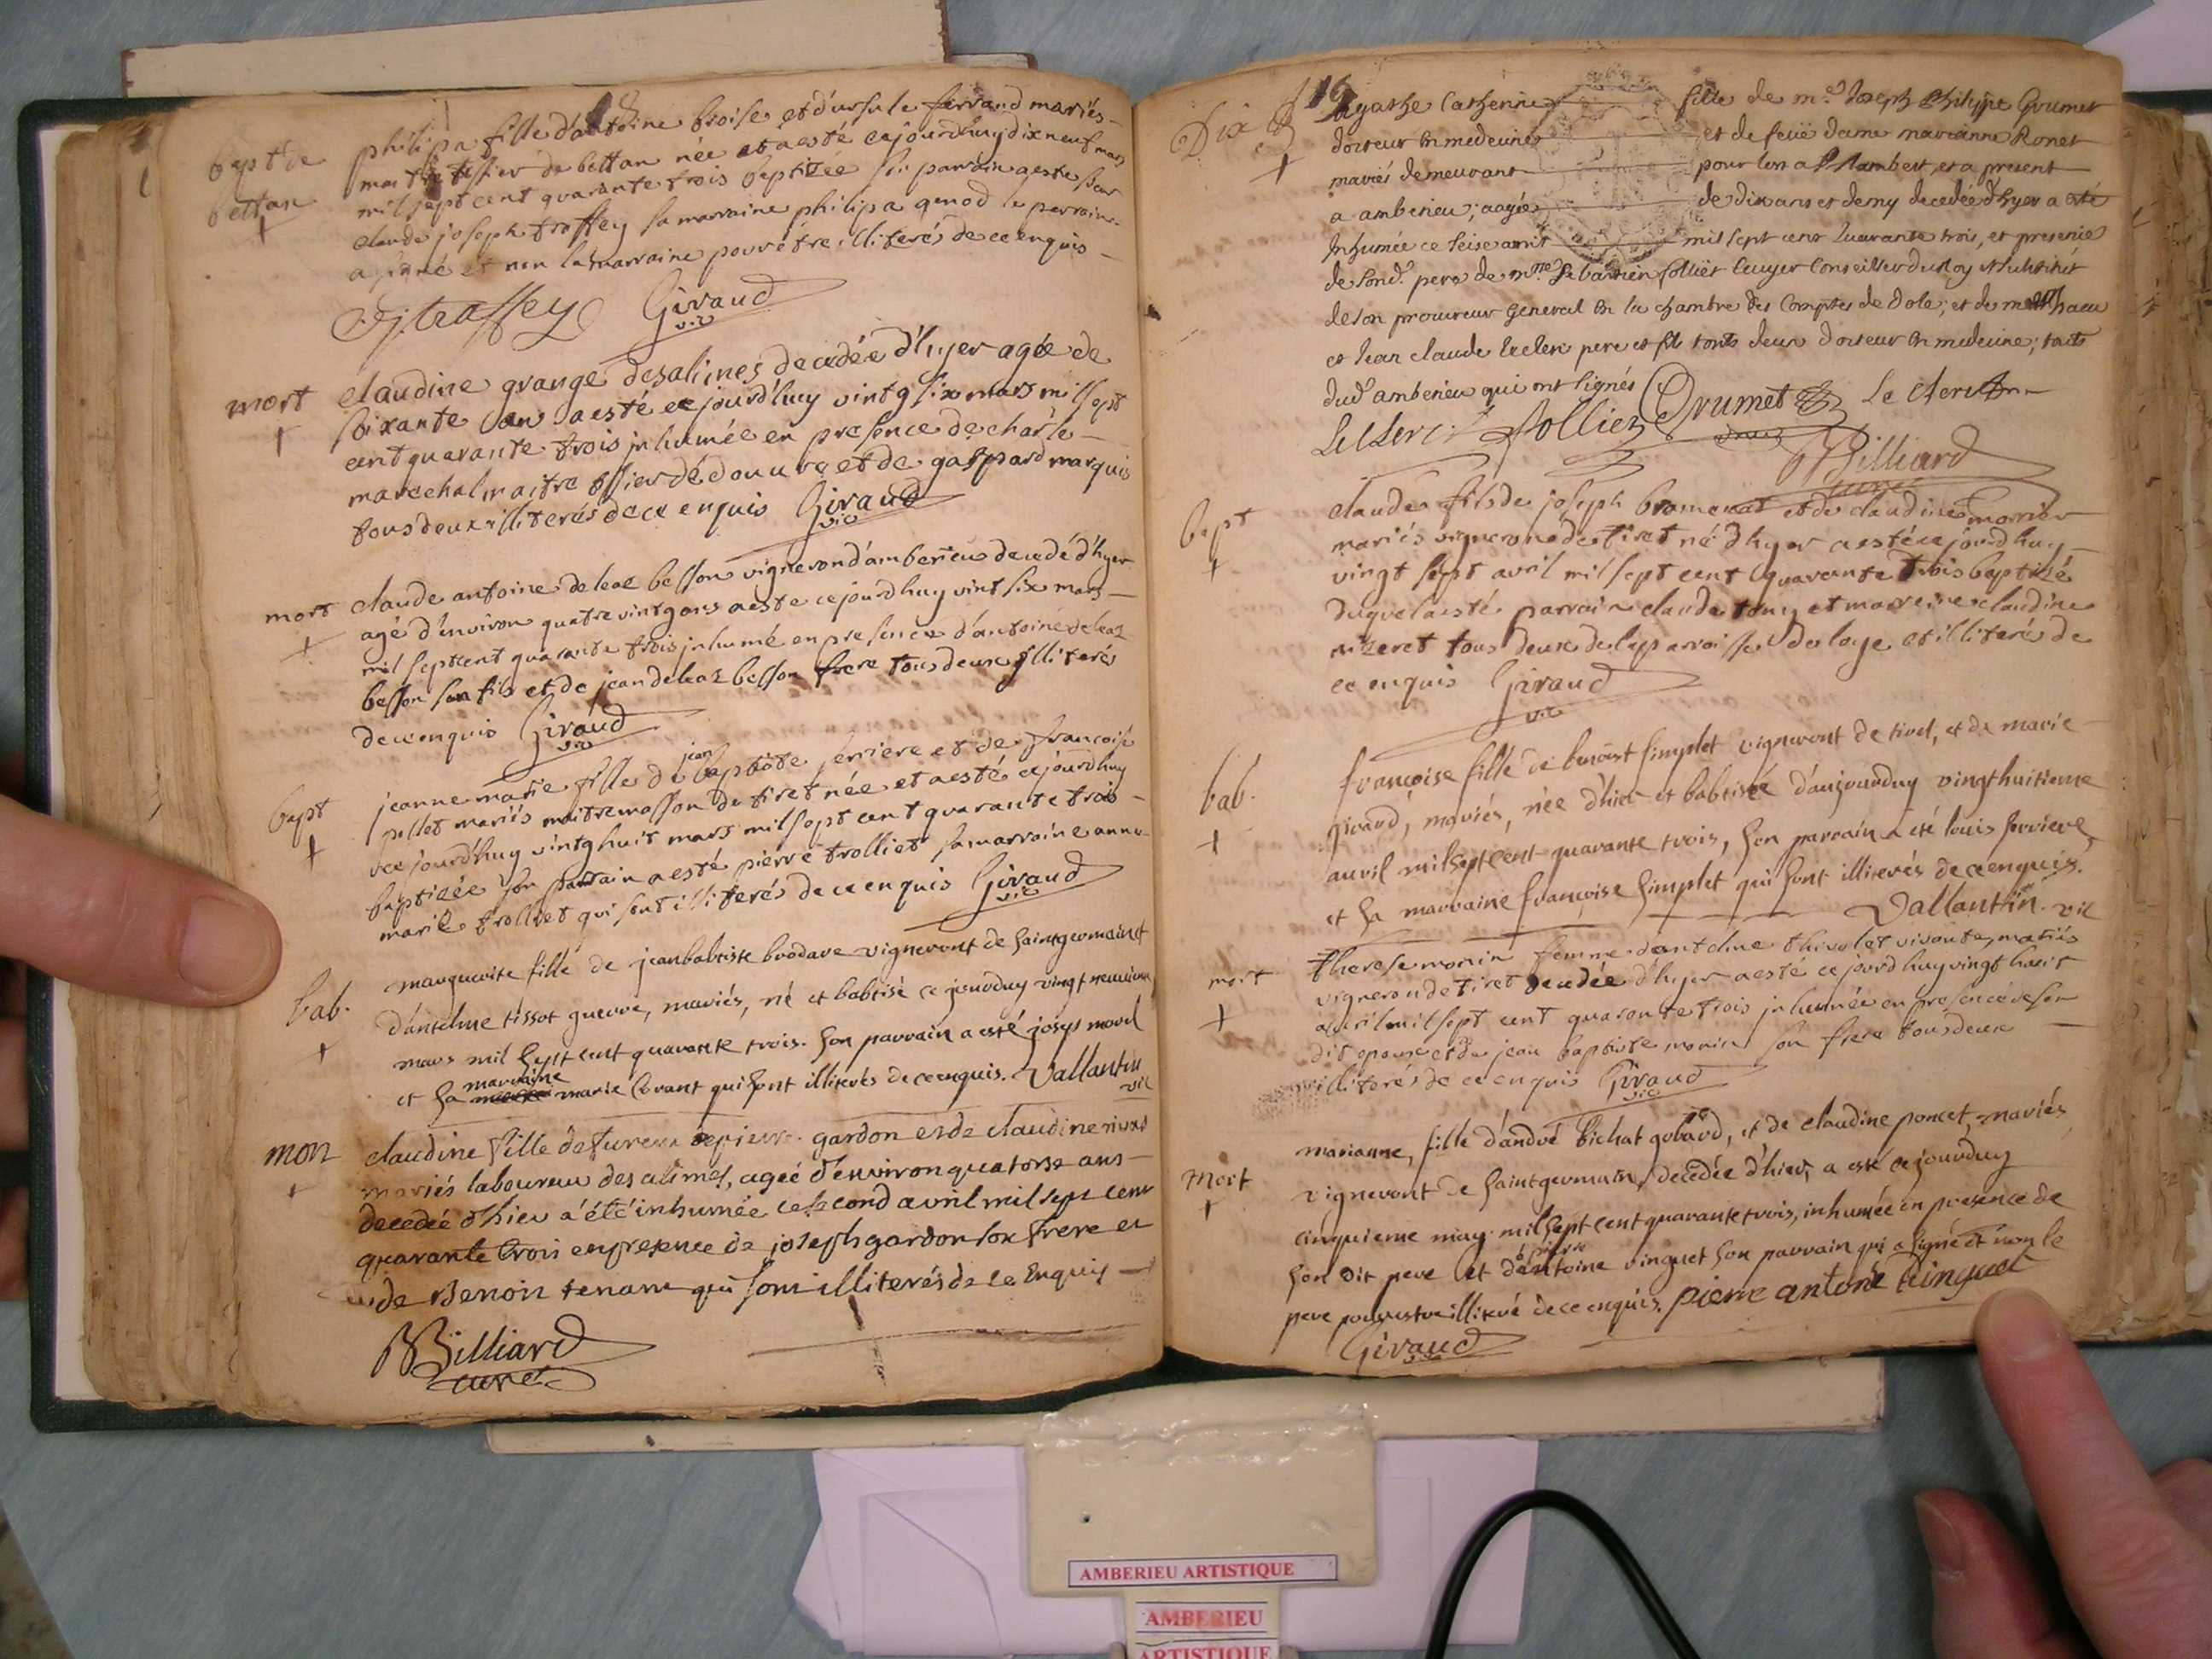 bapt de
bettan
philipa fille d'antoine broise et d'ursule ferrand mariés
maitre tissier de bettan née et a esté cejourdhuy dix neuf mars
mil sept cent quarante trois baptizée son parrain a este sieur
claude joseph traffey sa marraine philipa genod le parrain
a signé et non la marraine pour être illiterés de ce enquis
Cj traffey Giraud
vic
mort
claudine grange desalines decedée d'hyer agée de
soixante ans a esté ce jourd'huy vintg six mars mil sept
cent quarante trois inhumée en presence de charle
marechal maitre tissier de douvre et de gaspard marquis
tous deux illiterés de ce enquis Giraud
vic
mort
claude antoine deleaz besson vigneron d'amberieu decedé d'hyer
agé d'environ quatre vintg ans a este ce jourdhuy vint six mars
mil sept cent quarante trois inhumé en presence d'antoine deleaz
besson son fils et de jean deleaz besson frere tous deux illiterés
de ce enquis Giraud
vic
bapt
jeanne marie fille de jean baptiste ferriere et de francoise
pellet mariés maitre masson de tiret née et a esté cejourdhuy
ce jourd'huy vintg huit mars mil sept cent quarante trois
baptizée son parrain a esté pierre trolliet sa marraine anne
marie trolliet qui sont illiterés de ce enquis Giraud
vic
bab.
marguerite fille de jean babtiste brodare vigneront de saint germain et
d'antelme tissot guerre, mariés, né et babtisé ce jourduy vingt neuvieme
mars mil sept cent quarante trois. son parrain a esté joseps morel
et sa marraine marie lorant qui sont illiterés de ce enquis. Vallantin
vic
mort
claudine fille de fureur de pierre gardon et de claudine rivat
mariés laboureur des alimes, agée d'environ quatorse ans
decedée d'hier a été inhumée ce second avril mil sept cent
quarante trois en presence de joseph gardon son frere et
de Benoit tenant qui sont illiterés de ce Enquis
Billiard
curé
16
Agathe Catherine fille de m.e Joseph Philippe Grumet
docteur en medecine et de feuë dame marianne Ronet
mariés demeurant pour lors a St Rambert, et a present
a amberieu; aagée de dix ans et demy decedée d'hyer a été
Inhumée ce seise avril mil sept cent quarante trois, en presence
de sond. pere de m.re Sebastien folliet Ecuyer Conseiller du Roy et substitut
de son procureur General en la chambre des Comptes de dole; et de
et Jean claude leclerc pere et fils touts deux docteur en medecine; touts
dud. amberieu qui ont signés Grumet Le clerc
leclerc folliet
Billiard
curé
bapt
claude fils de joseph bromenat et de claudine morier
mariés vigneron de tiret né d'hyer a esté ce jourdhuy
vingt sept avril mil sept cent quarante trois baptizé
duquel a esté parrain claude tony et marreine claudine
mizeret tous deux de la parroisse de loye et illiterés de
ce enquis Giraud
vic
bab.
francoise fille de benoist simplet vigneront de tiret, et de marie
girard, mariés, née d'hier et babtisée d'aujourduy vingt huitieme
auril mil sept cent quarante trois, son parrain a eté louis ferriere
et sa marraine françoise simplet qui sont illiterés de ce enquis.
Vallantin. vic
mort
therese morin femme d'antelme thivolet vivante, mariés
vigneron de tiret decedée d'hyer a esté ce jourd'huy vingt huit
auril mil sept cent quarante trois inhumée en presence de son
dit epoux et de jean baptiste morin son frere tous deux
illiterés de ce enquis Giraud
vic
Mort
marianne, fille d'andré bichat gobard, et de claudine poncet, mariés
vigneront de saint germain, decedée d'hier, a esté ce jourduy
cinquieme may mil sept cent quarante trois, inhumée en presence de
son dit pere et de pierre antoine vinguet son parrain qui a signé et non le
pere pour estre illiteré de ce enquis. pierre antoine
Giraud
vic
AMBERIEU ARTISTIQUE
AMBERIEU
ARTISTIQUE